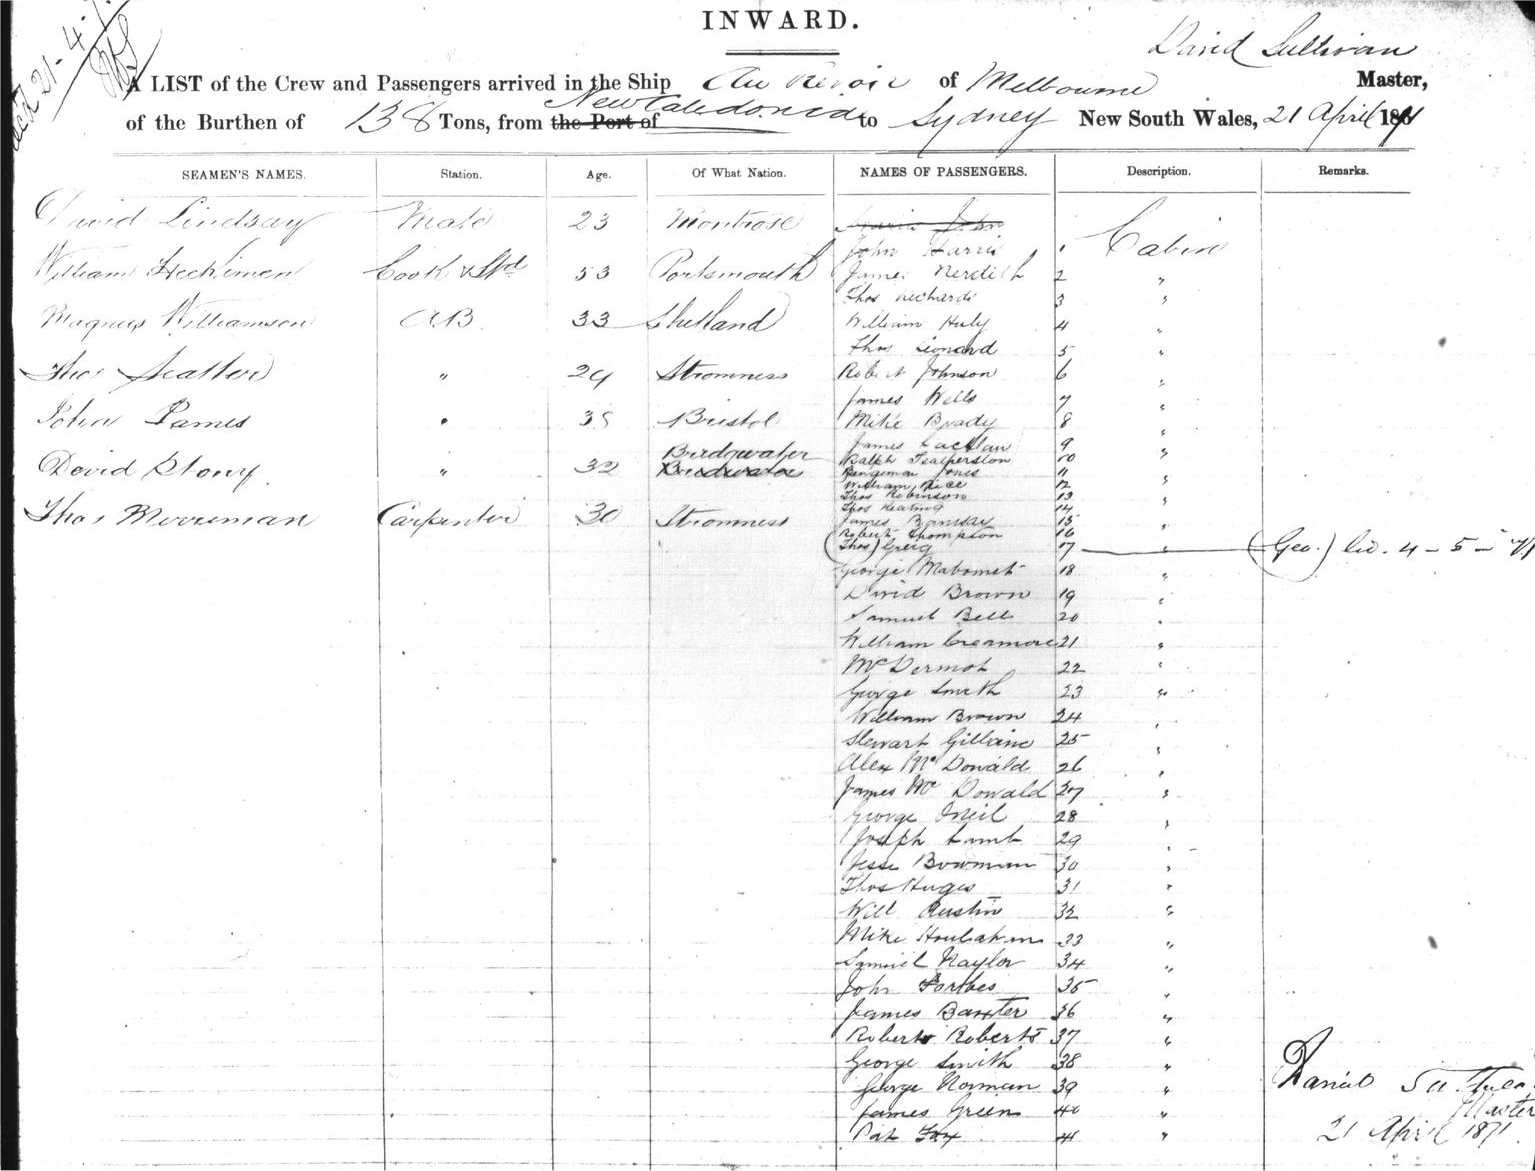 rec'd 21-4-7
INWARD.
David Sullivan
A LIST of the Crew and Passengers arrived in the Ship Au Revoir of Melbourne Master,
of the Burthen of 138 Tons, from the Port of New Caledonia to Sydney New South Wales, 21 April 1871
SEAMEN'S NAMES. Station. Age. Of What Nation. NAMES OF PASSENGERS. Description. Remarks.
David Lindsay Mate 23 Montrose Harris John
John Harris 1 Cabin
William Heckimen Cook & Std 53 Portsmouth James Merdith 2 "
Thos Richards 3 "
Magnus Williamson AB 33 Shetland William Huly 4 "
Thos Leonard 5 "
Thos Scatter " 29 Stromness Robert Johnson 6 "
James Wells 7 "
John James " 38 Bristol Mike Brady 8 "
James Lachlan 9 "
David Stony " 32 Bridgwater Ralph 10 "
Bengeman Jones 11 "
William Rice 12
Thos Robinson 13 "
Thos Keating 14
Thos Merriman Carpenter 30 Stromness James 15 "
Robert Thompson 16
(Thos) Greig 17 " (Geo.) lic. 4-5-71
George Mabomet 18 "
David Brown 19 "
Samuel Bell 20 "
William Creamore 21 "
McDermot 22 "
George Smith 23 "
William Brown 24 "
Stewart Gillaine 25 "
Alex McDonald 26 "
James McDonald 27 "
George Oneil 28 "
Joseph Lamb 29 "
Jesse Bowman 30 "
Thos Huges 31 "
Will Austin 32 "
Mike Houlahan 33 "
Samuel Naylor 34 "
John Forbes 35 "
James Baxter 36 "
Robert Roberts 37 "
George Smith 38 "
George Norman 39 "
James Green 40 "
Pat Foy 41 "
Master
21 April 1871.